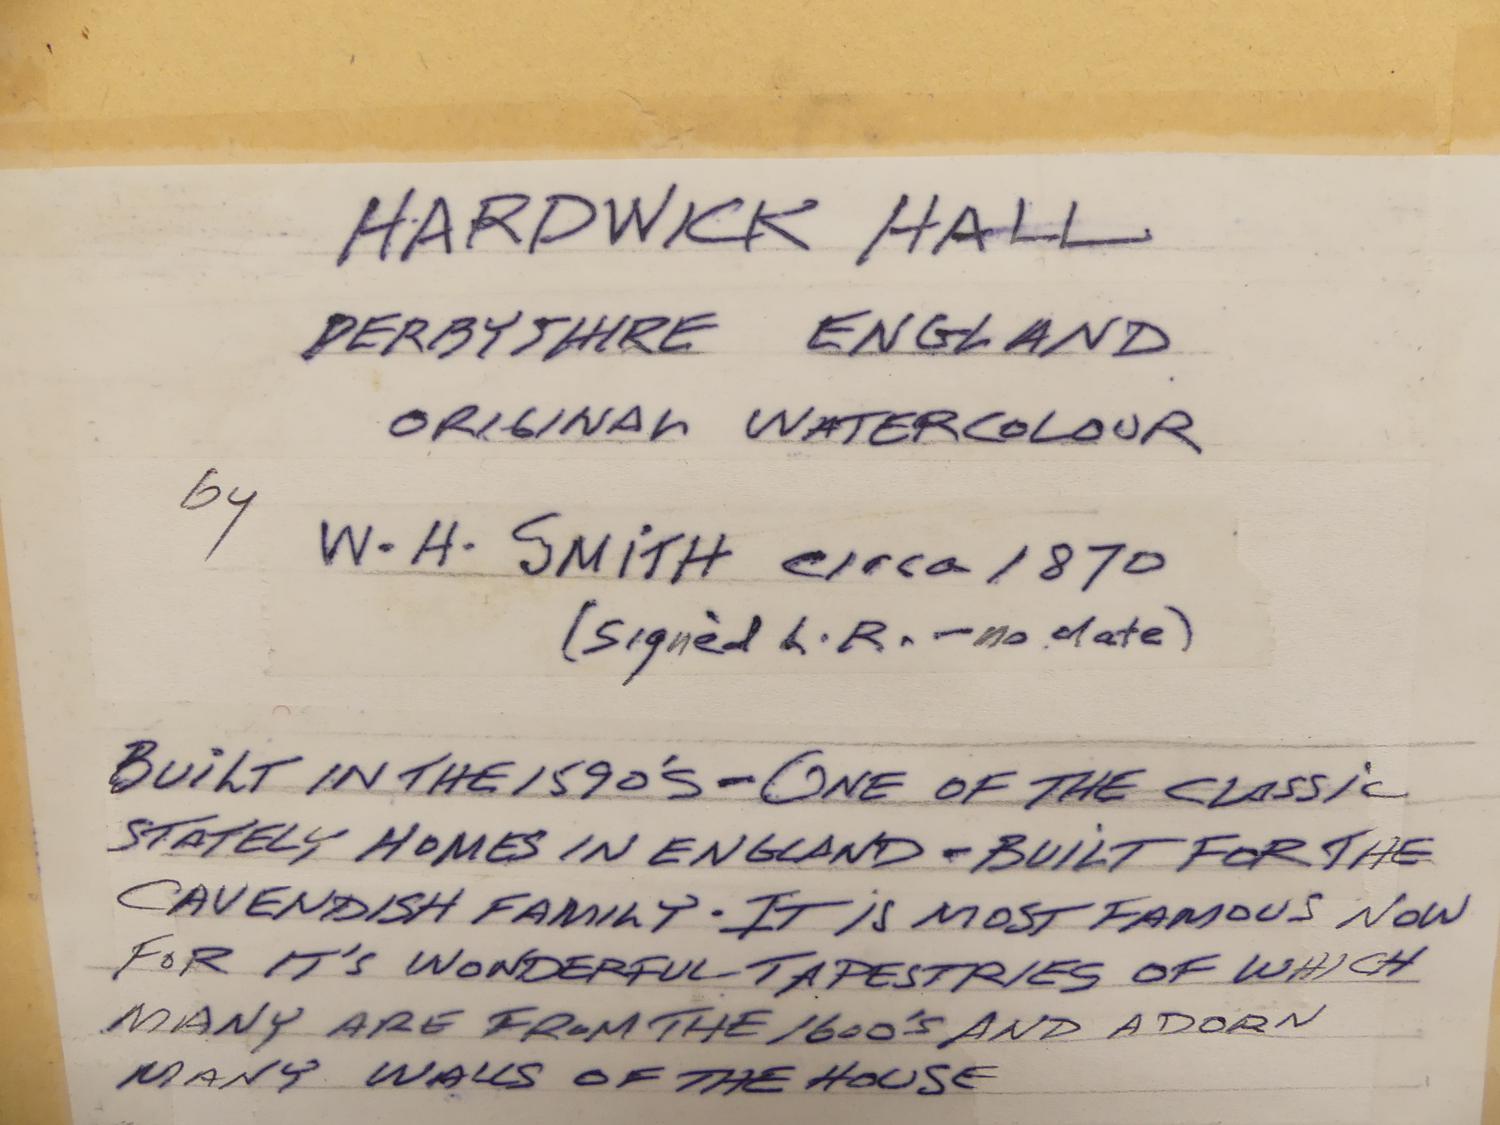 HARDWICK HALL
DERBYSHIRE ENGLAND
ORIGINAL WATERCOLOUR
by
W. H. SMITH circa 1870
(Signed L.R. - no date)
BUILT IN THE 1590'S - ONE OF THE CLASSIC
STATELY HOMES IN ENGLAND - BUILT FOR THE
CAVENDISH FAMILY. IT IS MOST FAMOUS NOW
FOR IT'S WONDERFUL TAPESTRIES OF WHICH
MANY ARE FROM THE 1600'S AND ADORN
MANY WALLS OF THE HOUSE